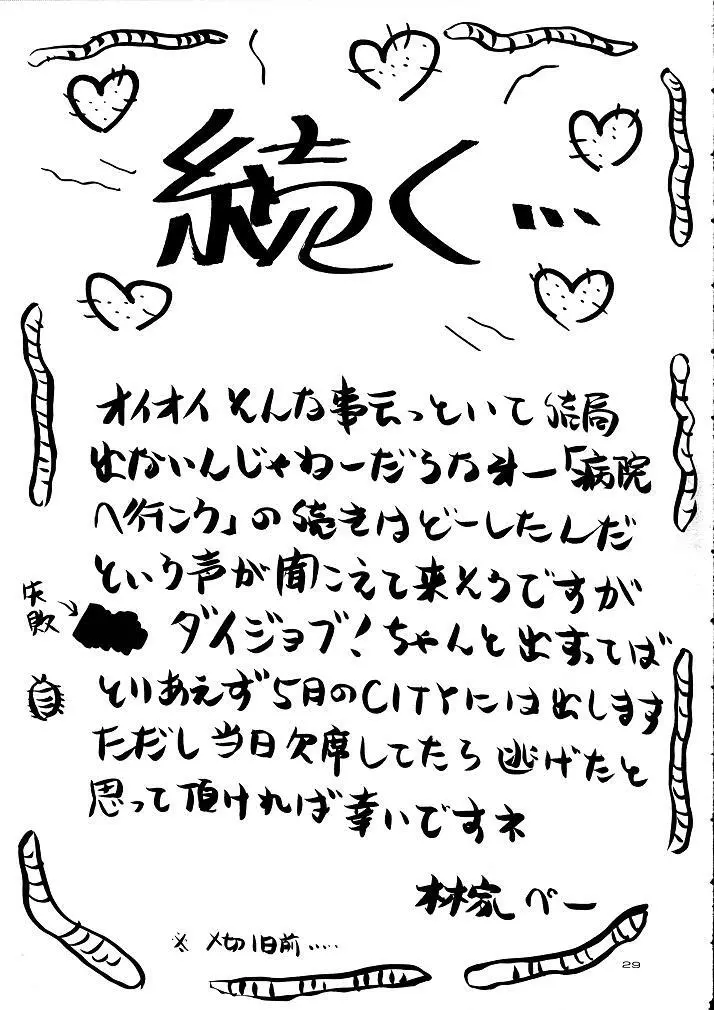 続く…
オイオイそんな事云っといて結局
出ないんじゃねーだろなオー「病院
へ行ンク」の続きはどーしたんだ
という声が聞こえて来そうですが
失敗
ダイジョブ!ちゃんと出すってば
とりあえず5月のCITYには出します
ただし当日欠席してたら逃げたと
思って頂ければ幸いですネ
林家ペー
※〆切1日前……
29